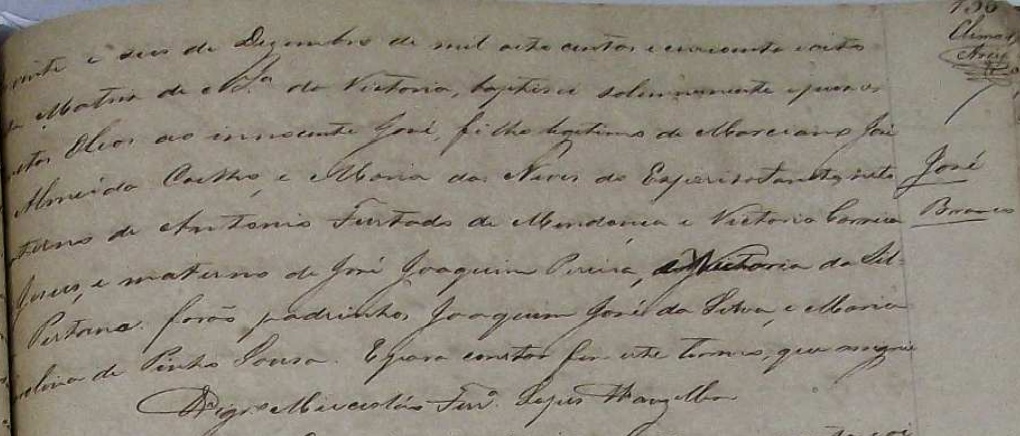 vinte e seis de Dezembro de mil oito centos e cincoenta e oito
Matris de N Sra da Victoria, baptisei solemnemente e puz os
ntos Oleos ao innocente José, filho legitimo de Marciano José
Almeida Coelho, e Maria das Neves do Espirito Santo, neto
terno de Antonio Furtado de Mendonça e Victoria Correia
Jesus, e materno de José Joaquim Pereira, e Victoria da Sil-
Pestana. forão padrinhos, Joaquim José da Silva, e Maria
olina de Pinho Sousa. E para constar fiz este termo, que assignei
Vigro Miecesláo Ferra Lopes Wanzeller
José
Branco